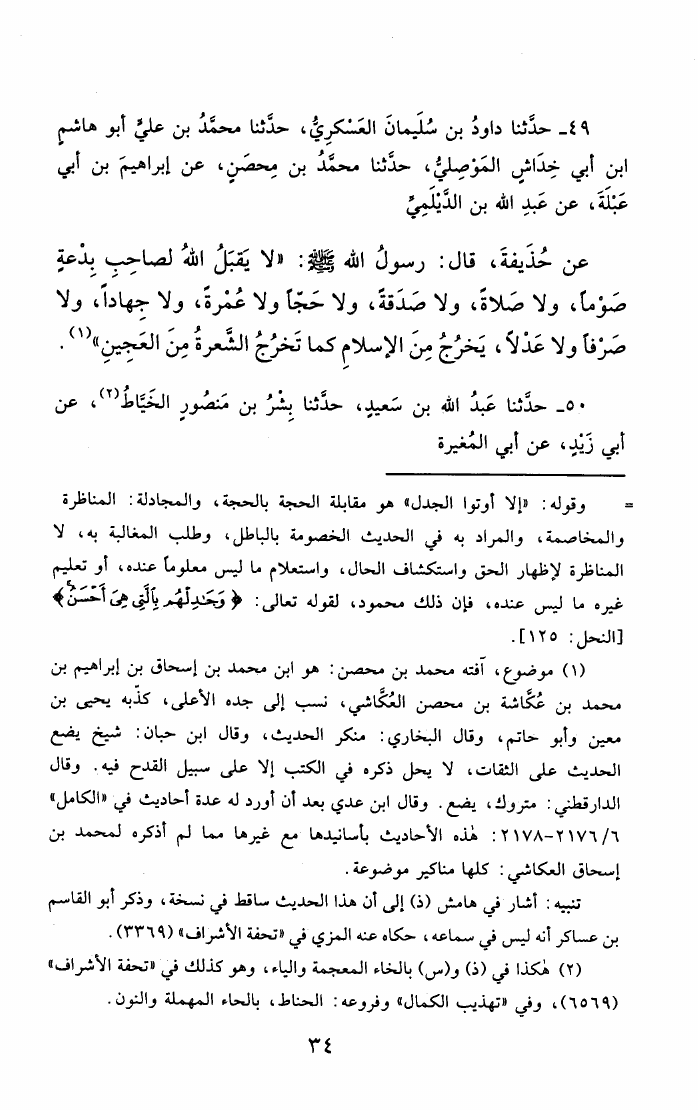 ٤٩ـ حدَّثنا داودُ بن سُلَيمانَ العَسْكرِيُّ، حدَّثنا محمَّدُ بن عليٍّ أبو هاشمٍ
ابن أبي خِدَاشٍ المَوْصِليُّ، حدَّثنا محمَّدُ بن مِحصَنٍ، عن إبراهيمَ بن أبي
عَبْلَةَ، عن عَبدِ الله بن الدَّيْلَمِيِّ
عن حُذَيفةَ، قال: رسولُ الله ﷺ: «لا يَقبَلُ اللهُ لصاحبِ بِدْعةٍ
صَوْماً، ولا صَلاةً، ولا صَدَقةً، ولا حَجّاً ولا عُمْرةً، ولا جِهاداً، ولا
صَرْفاً ولا عَدْلاً، يَخرُجُ مِنَ الإسلامِ كما تَخرُجُ الشَّعرةُ مِنَ العَجِينِ»(١).
٥٠ـ حدَّثنا عَبدُ الله بن سَعيدٍ، حدَّثنا بِشْرُ بن مَنصُورٍ الخَيَّاطُ(٢)، عن
أبي زَيْدٍ، عن أبي المُغيرة
= وقوله: «إلا أوتوا الجدل» هو مقابلة الحجة بالحجة، والمجادلة: المناظرة
والمخاصمة، والمراد به في الحديث الخصومة بالباطل، وطلب المغالبة به، لا
المناظرة لإظهار الحق واستكشاف الحال، واستعلام ما ليس معلوماً عنده، أو تعليم
غيره ما ليس عنده، فإن ذلك محمود، لقوله تعالى: ﴿وَجَٰدِلْهُم بِٱلَّتِي هِيَ أَحْسَنُ﴾
[النحل: ١٢٥].
(١) موضوع، آفته محمد بن محصن: هو ابن محمد بن إسحاق بن إبراهيم بن
محمد بن عُكَّاشة بن محصن العُكَّاشي، نسب إلى جده الأعلى، كذّبه يحيى بن
معين وأبو حاتم، وقال البخاري: منكر الحديث، وقال ابن حبان: شيخ يضع
الحديث على الثقات، لا يحل ذكره في الكتب إلا على سبيل القدح فيه. وقال
الدارقطني: متروك، يضع. وقال ابن عدي بعد أن أورد له عدة أحاديث في «الكامل»
٦/٢١٧٦-٢١٧٨: هٰذه الأحاديث بأسانيدها مع غيرها مما لم أذكره لمحمد بن
إسحاق العكاشي: كلها مناكير موضوعة.
تنبيه: أشار في هامش (ذ) إلى أن هذا الحديث ساقط في نسخة، وذكر أبو القاسم
بن عساكر أنه ليس في سماعه، حكاه عنه المزي في «تحفة الأشراف» (٣٣٦٩).
(٢) هٰكذا في (ذ) و(س) بالخاء المعجمة والياء، وهو كذلك في «تحفة الأشراف»
(٦٥٦٩)، وفي «تهذيب الكمال» وفروعه: الحناط، بالحاء المهملة والنون.
٣٤